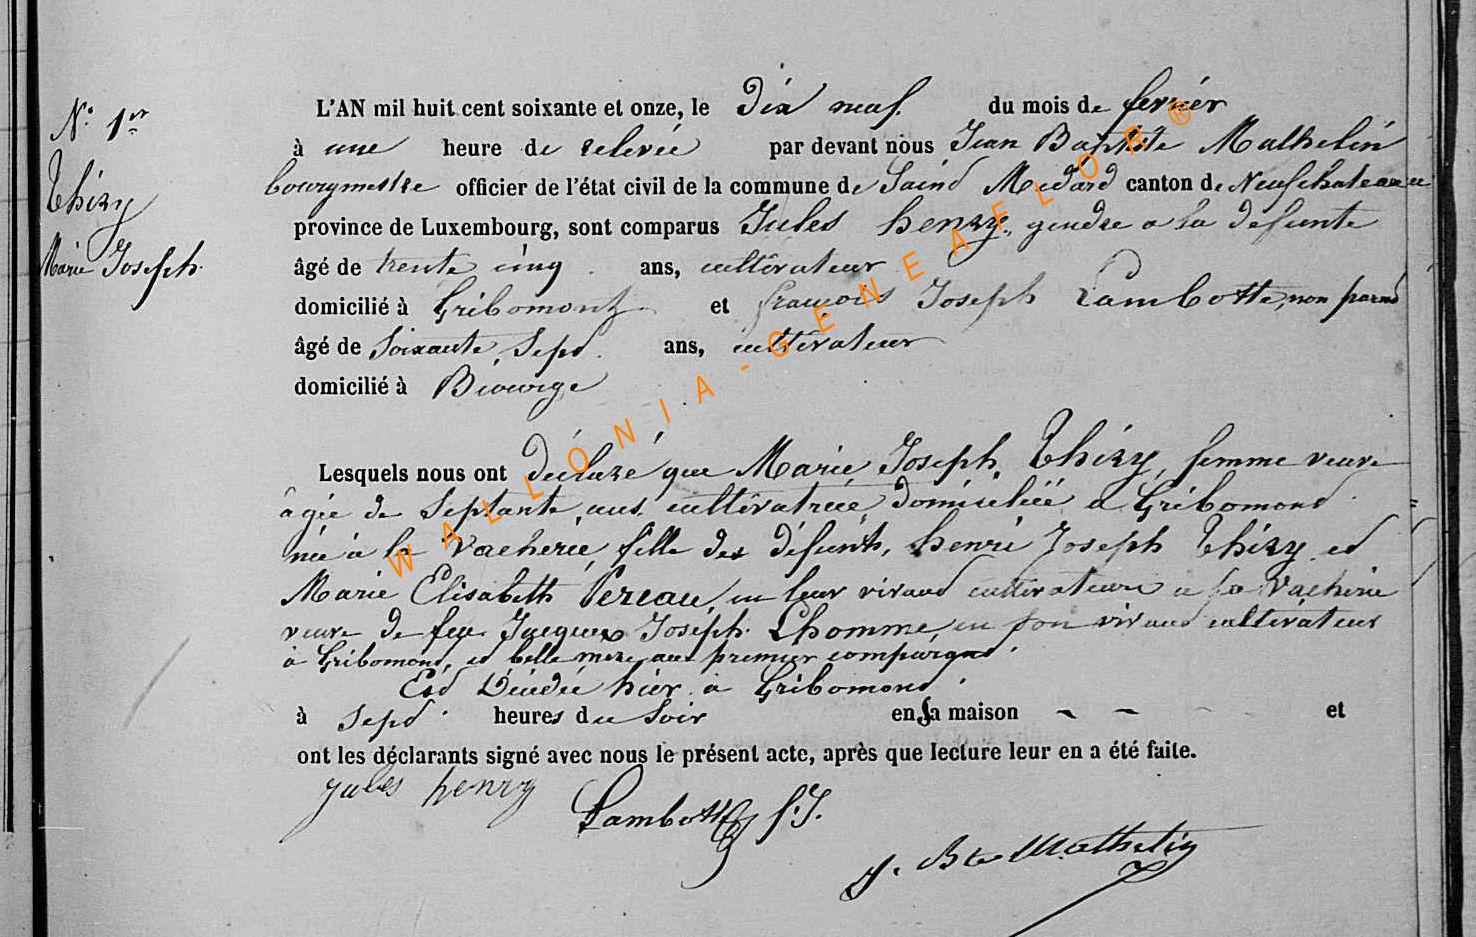 N.º 1er
Thiry
Marie Joseph.
L'AN mil huit cent soixante et onze, le Dix neuf. du mois de fevriér
à une heure de relevée par devant nous Jean Baptiste Mathelin
bourgmestre officier de l'état civil de la commune de Saind Medard canton de Neufchateau
province de Luxembourg, sont comparus Jules henry, gendre a la defunte
âgé de trente cinq ans, cultivateur
domicilié à Gribomont et françois Joseph Lambotte, non parend
âgé de Soixante Sepd ans, cultivateur
domicilié à Biourge
Lesquels nous ont déclaré que Marie Joseph Thiry, femme veuve
âgée de Septante ans cultivatrice domiciliée a Gribomond
née à la Vacherie, fille des défunts, henri Joseph Thiry ed
Marie Elisabeth Pereau, en leur vivand cultivateurs a la Vacherie
veuve de feu Jacques Joseph Lhomme, en son vivand cultivateur
à Gribomond, ed belle mere au premier comparand.
Esd Décédée hier à Gribomond.
à Sepd heures du Soir en sa maison ~ - - - et
ont les déclarants signé avec nous le présent acte, après que lecture leur en a été faite.
Jules henry
Lambotte f. J.
J. Bte Mathelin
WALLONIA-GENEAFLOR®